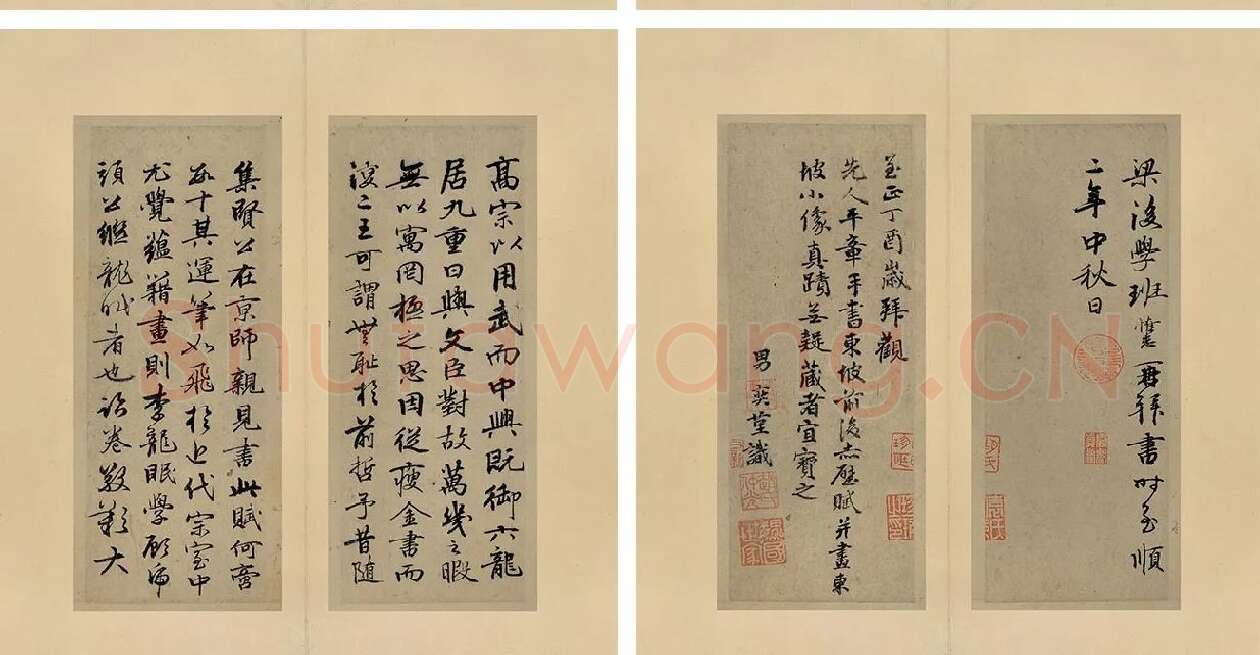 高宗以用武而中興既御六龍
居九重日與文臣對故萬幾之暇
無以寓罔極之思因從瘦金書而
浸二王可謂無耻於前哲予昔隨
集賢公在京師親見書此賦何啻
數十其運筆如飛於近代宗室中
尤覺蘊籍畫則李龍眠學顧虎
頭公繼龍眠者也卷大
梁後學班惟志再拜書時至順
二年中秋日
至正丁酉歲拜觀
先人平章手書東坡前後赤壁賦并畫東
坡小像真蹟無疑藏者宜寶之
男奕謹識
Shufawang.CN